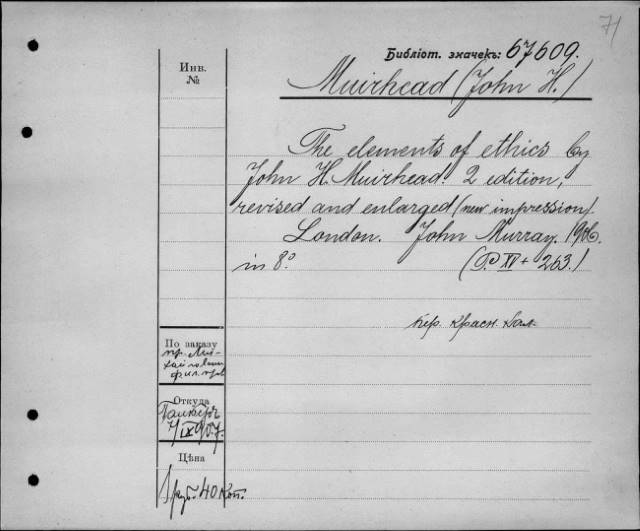 71
Библіот. значекъ: 67609.
Инв.
№
Muirhead (John H.)
The elements of ethics by
John H. Muirhead. 2 edition,
revised and enlarged (new impression).
London. John Murray. 1906.
in 8°. (P. XV + 263.)
пер. красн. кол.
По заказу
пр. Ми-
хайловск
фил.
Откуда
7/IX 907.
Цѣна
1 руб. 40 коп.